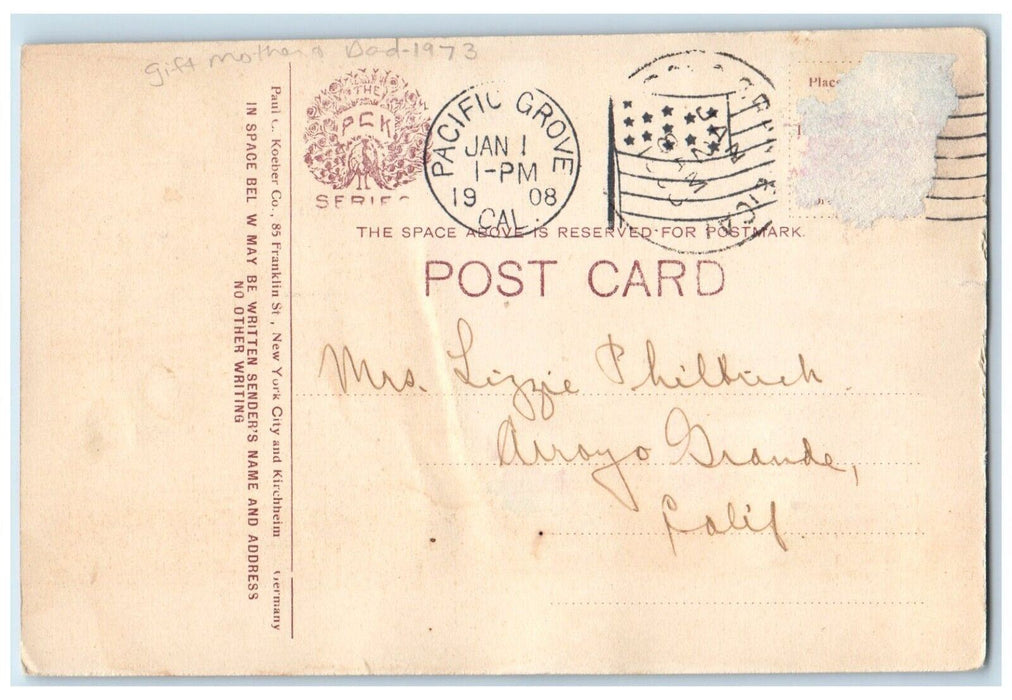 gift mother & Dad-1973
THE
PCK
SERIES
PACIFIC GROVE
JAN 1
1-PM
19 08
CAL.
Place
THE SPACE ABOVE IS RESERVED FOR POSTMARK.
POST CARD
Mrs. Lizzie Philbrick.
Arroyo Grande,
Calif.
Paul C. Koeber Co., 85 Franklin St, New York City and Kirchheim Germany
IN SPACE BEL W MAY BE WRITTEN SENDER'S NAME AND ADDRESS
NO OTHER WRITING